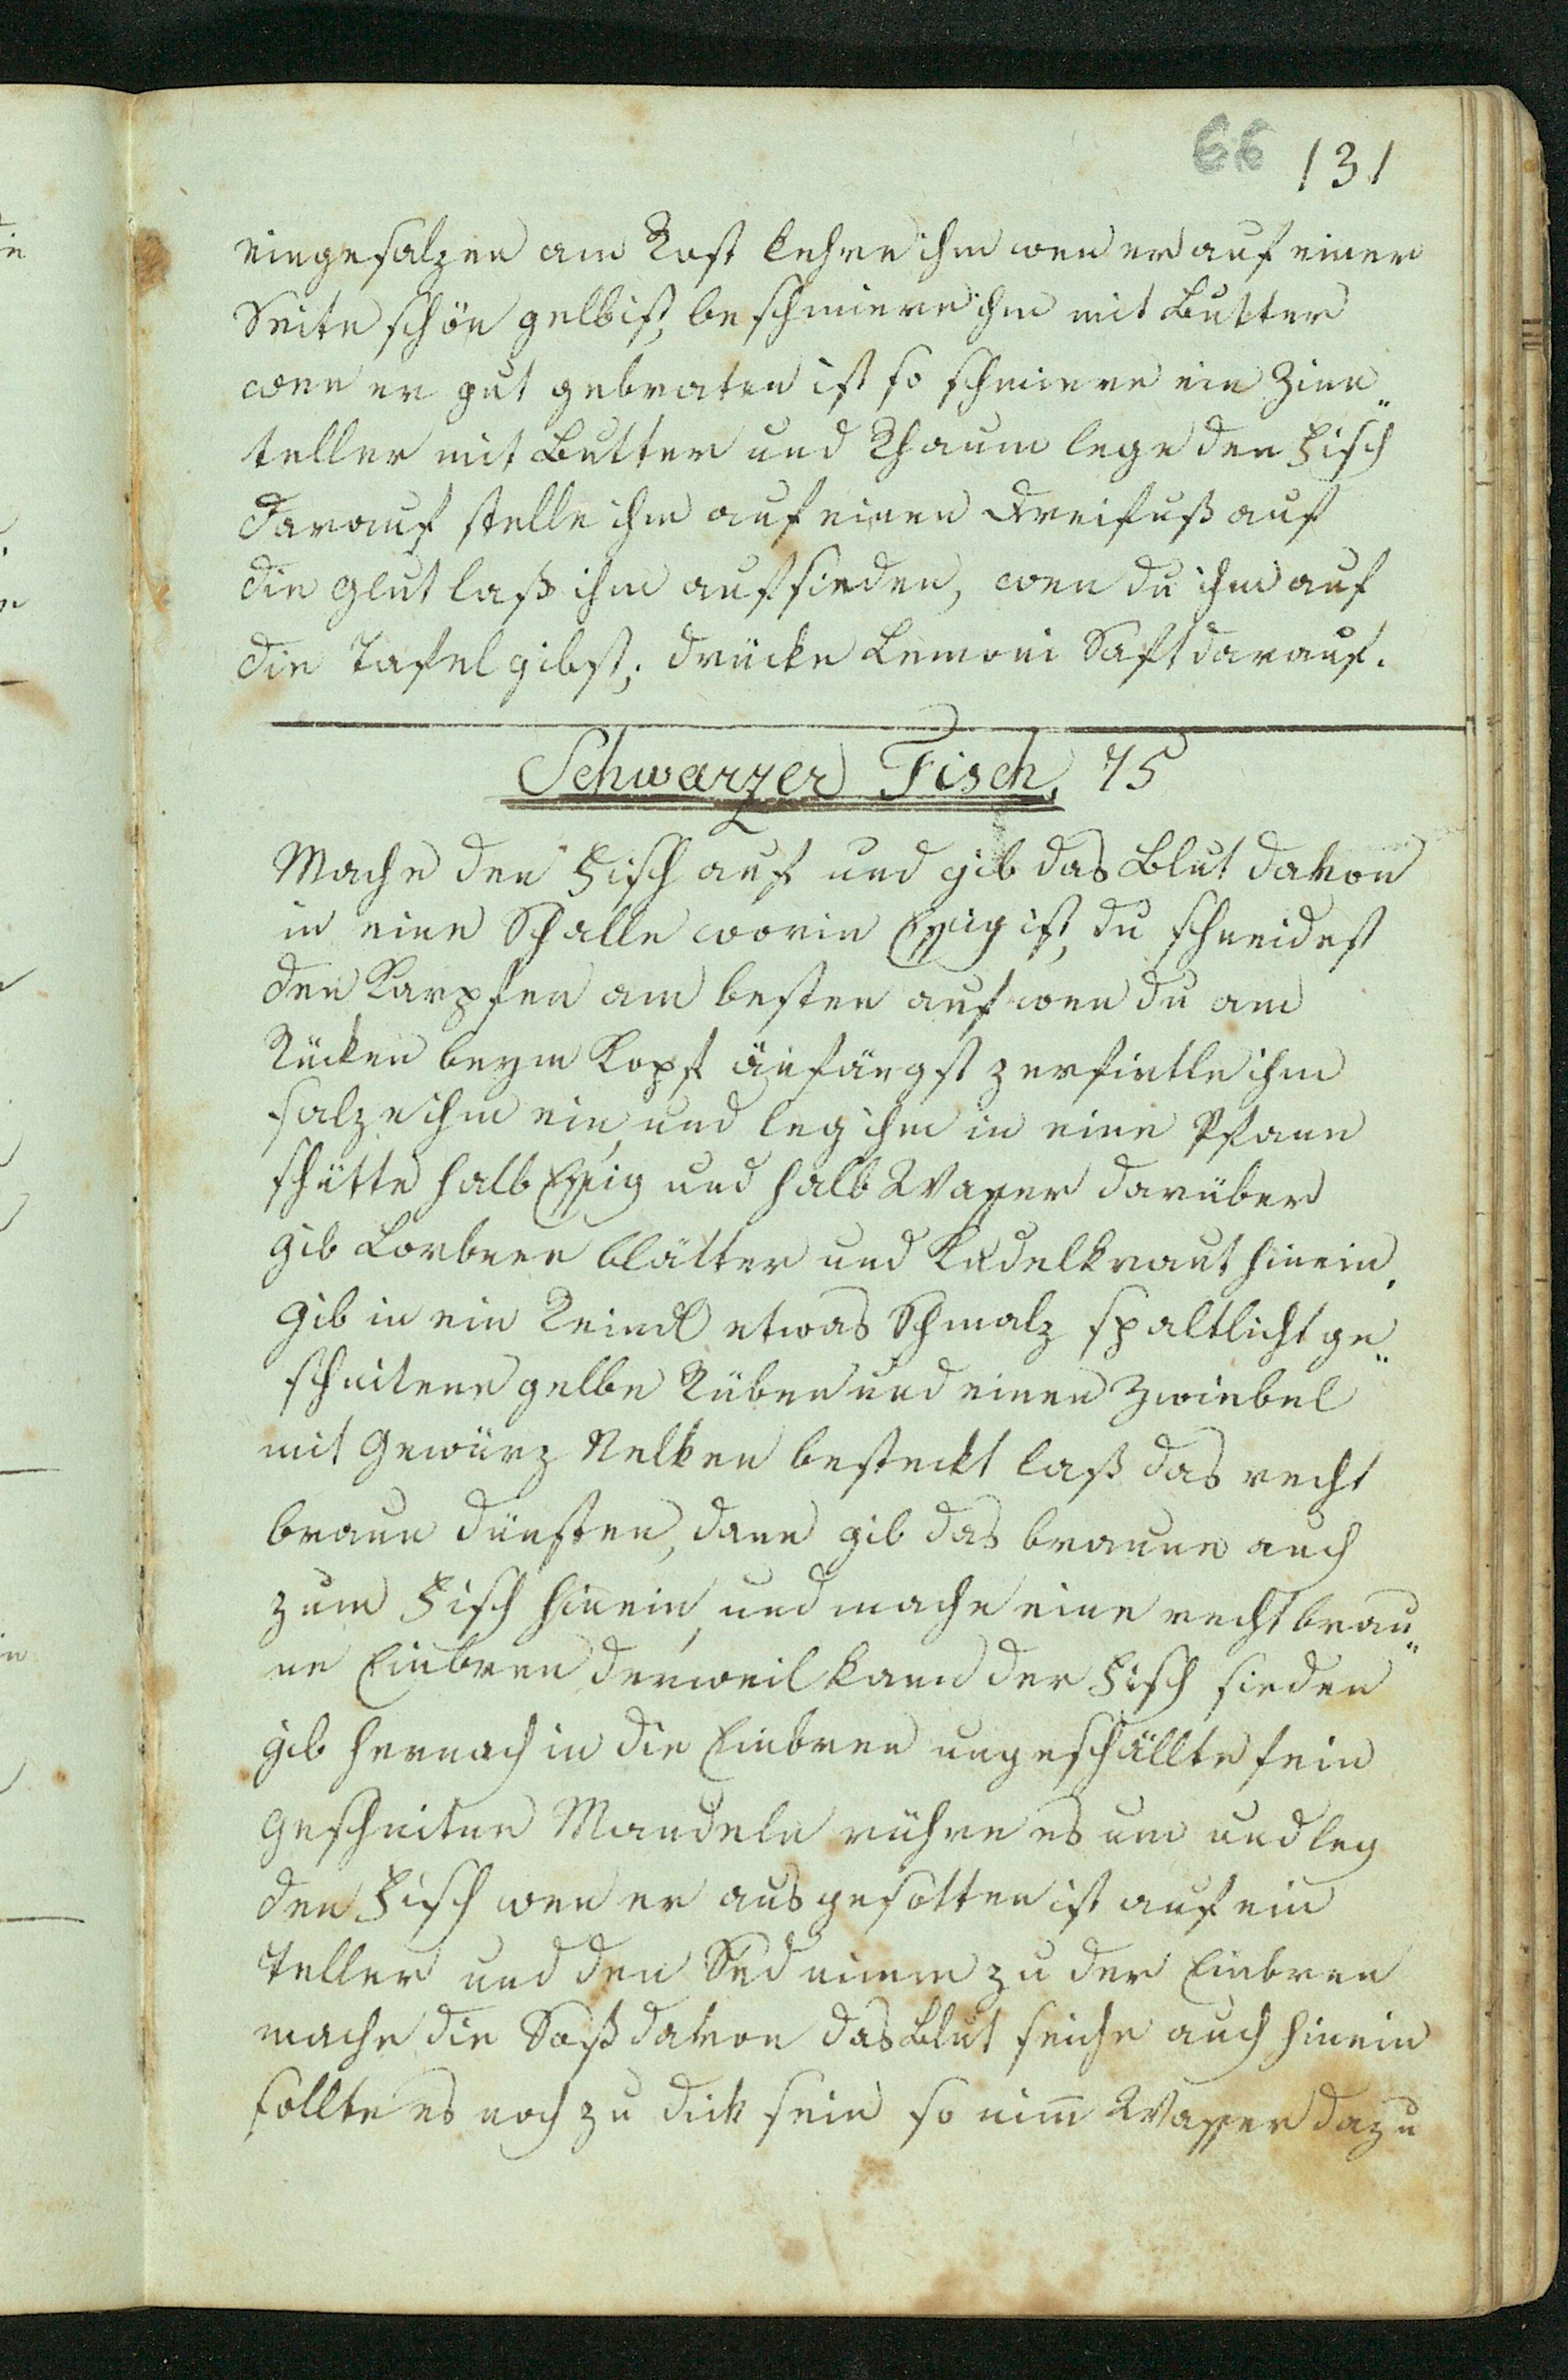 66 131
eingesalzen am Rost kehre ihm wen er auf einer
Seite schön gelb ist, beschmiere ihm mit Butter
wen er gut gebraten ist so schmiere ein Zinn„
teller mit Butter und Rhaum lege den Fisch
darauf stelle ihm auf einen Dreifuß auf
die Glut laß ihm aufsieden, wen du ihm auf
die Tafel gibst; drücke Lemoni Saft darauf.
Schwarzer Fisch, 75
Mache den Fisch auf und gib das Blut davon
in eine Schalle worin Essig ist, du schneidest
den Karpfen am besten auf wen du am
Rücken beym Kopf änfängst zerfiertle ihm
salze ihm ein, und leg ihm in eine Pfann
schütte halb Essig und halb Wasser darüber
gib Lorbeer blätter und Kudelkraut hinein,
gib in ein Reindl etwas Schmalz spaltlicht ge„
schnitene gelbe Rüben und einen Zwiebel
mit Gewürz Nelken besteckt laß das recht
braun dünsten, dann gib das braune auch
zum Fisch hinein, und mache eine recht brau„
ne Einbren derweil kann der Fisch sieden
gib hernach in die Einbren ungeschällte fein
geschnitene Mandeln rühre es um und leg
den Fisch wen er ausgesotten ist auf ein
Teller und den Sud nimm zu der Einbren
mache die Soß davon das Blut seiche auch hinein
sollte es noch zu dick sein so nim̅ Wasser dazu